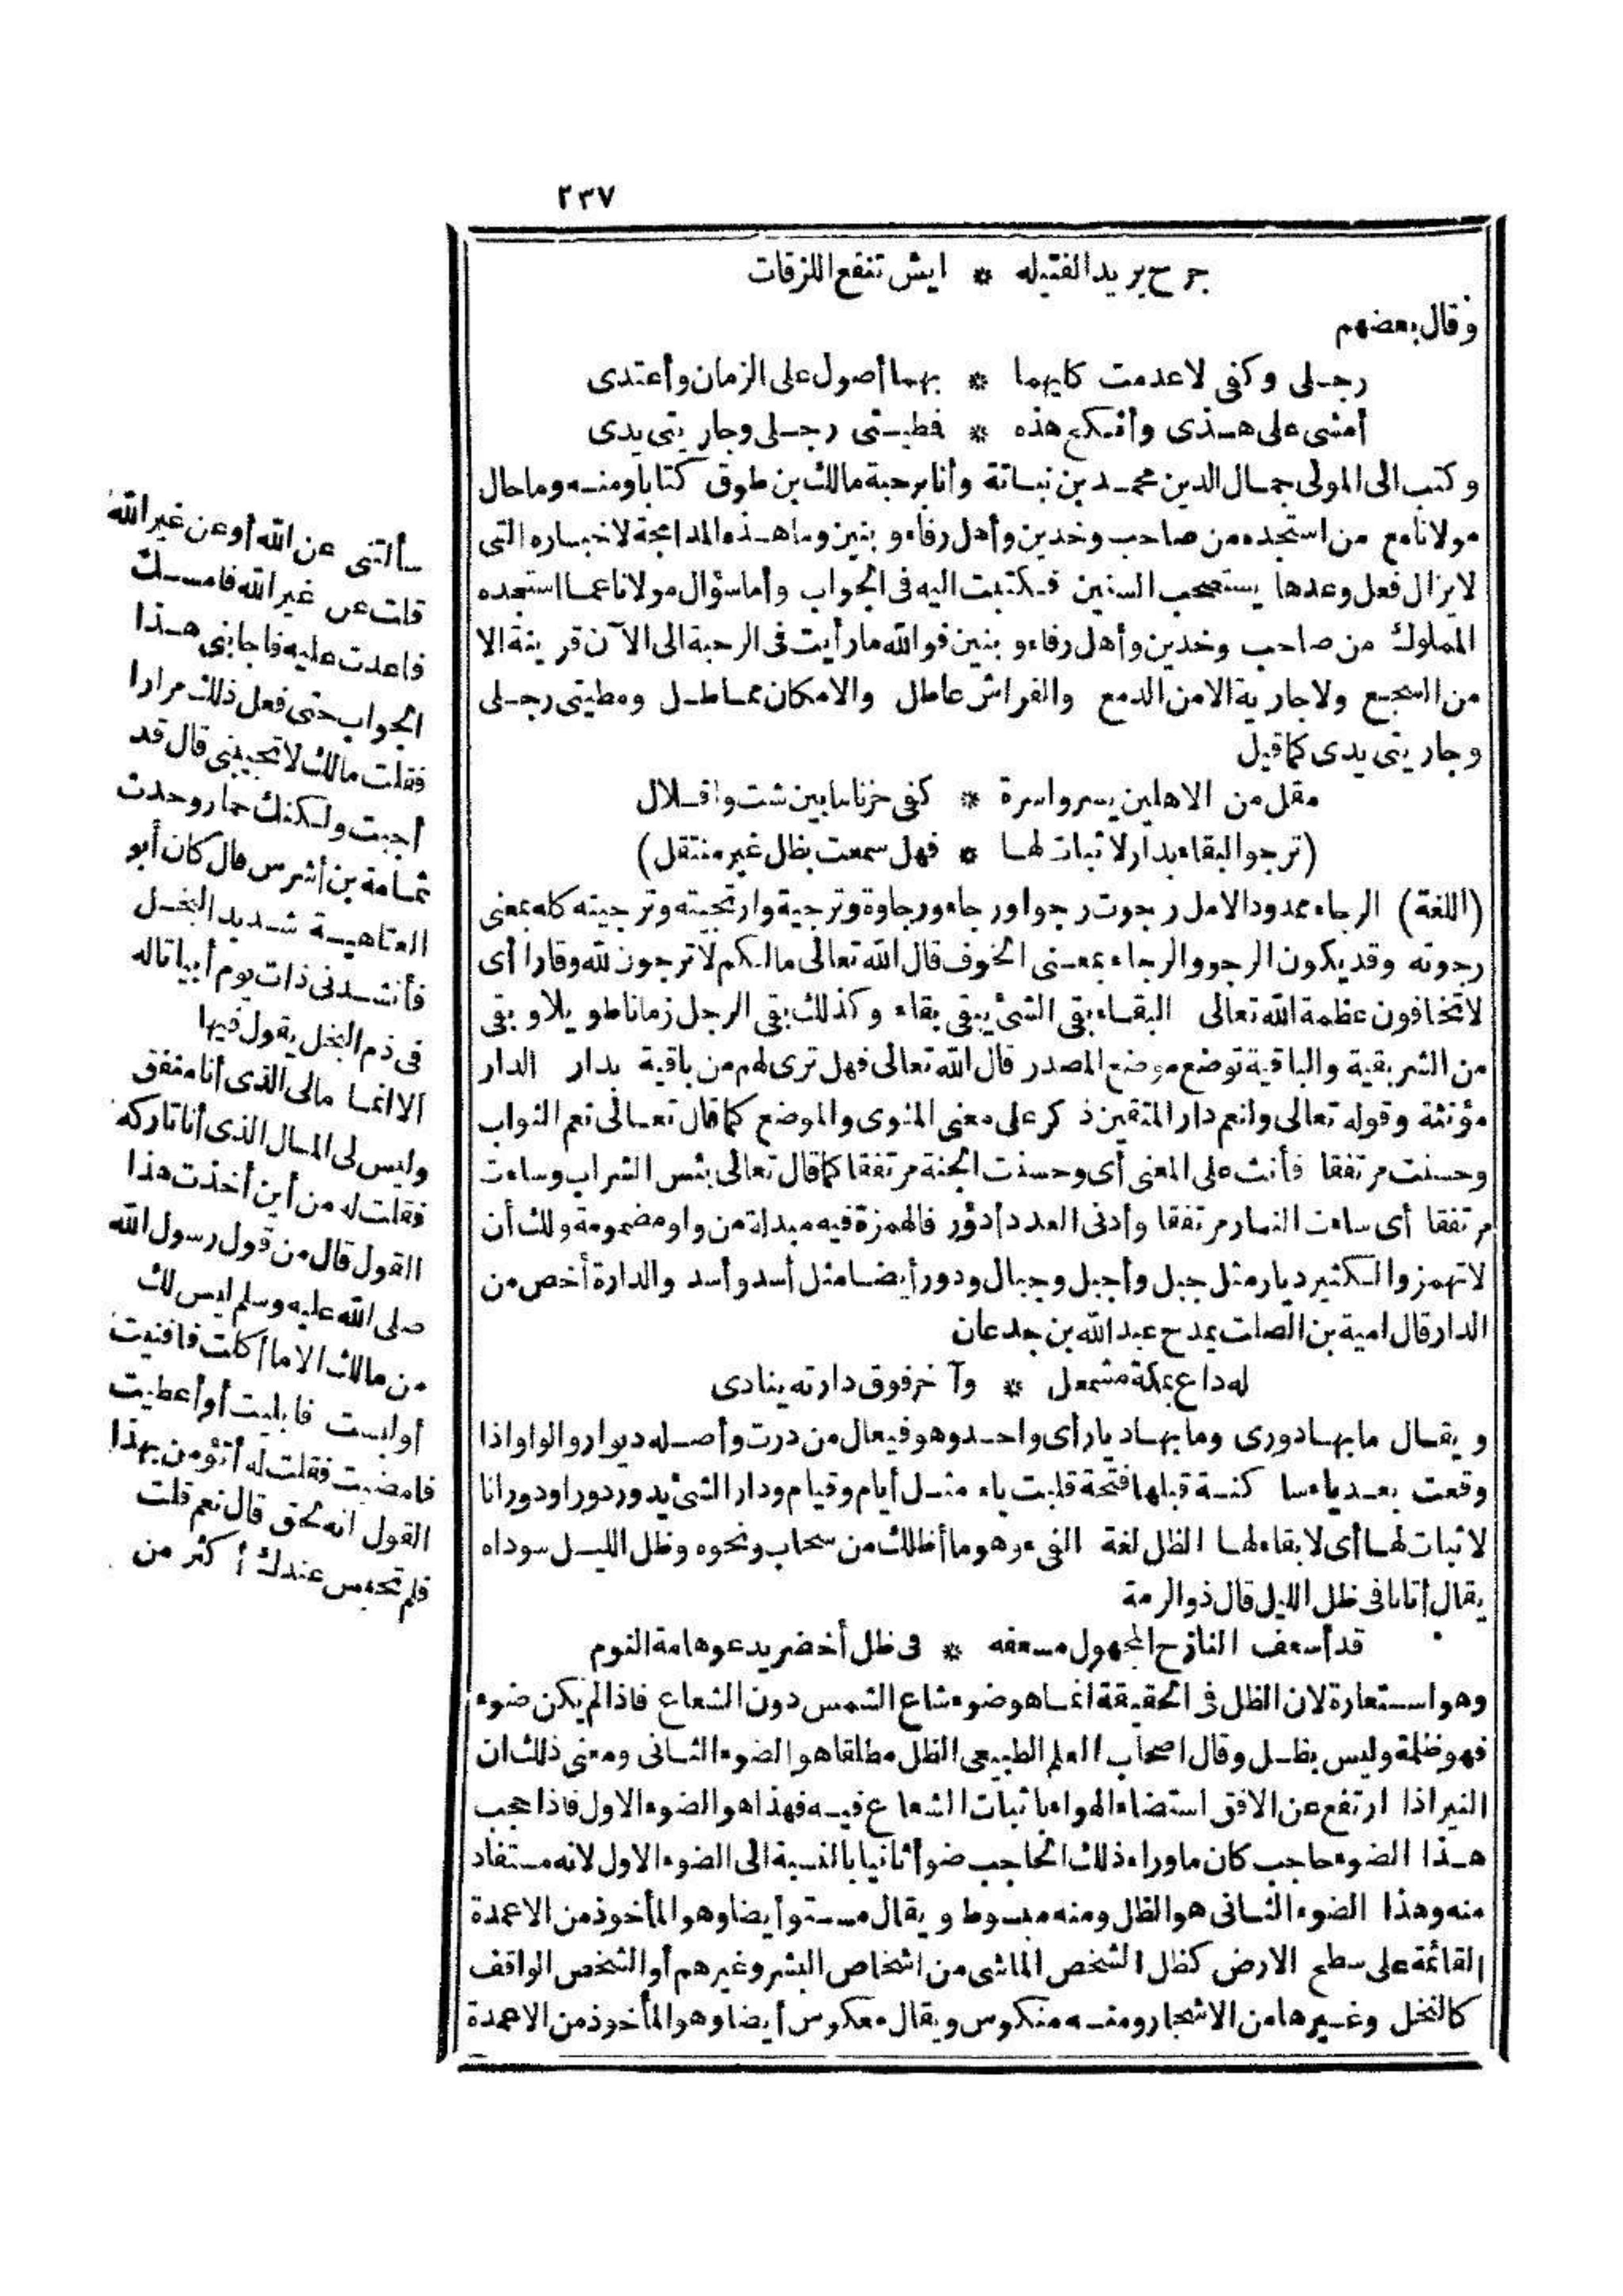 ٢٣٧
جرح يريد الفتيله * ايش تنفع اللزقات
وقال بعضهم
رجلى وكفى لاعدمت كليهما * بهما أصول على الزمان وأعتدى
أمشى على هذى وأنكح هذه * فطيتى رجلى وجاريتى يدى
وكتب الى المولى جمال الدين محمد بن نباتة وأنا برحبة مالك بن طوق كتابا ومنه وما حال
مولانا مع من استجده من صاحب وخدين وأهل رفاء وبنين وما هذه المدامجة لاخباره التى
لايزال فعل وعدها يستصحب السنين فكتبت اليه فى الجواب وأما سؤال مولانا عما استجده
المملوك من صاحب وخدين وأهل رفاء وبنين فوالله مارأيت فى الرحبة الى الآن قرينة الا
من السجع ولا جارية الا من الدمع والفراش عاطل والامكان مماطل ومطيتى رجلى
وجاريتى يدى كما قيل
مقل من الاهلين يسر واسرة * كفى حزنا مابين شت واقلال
(ترجو البقاء بدار لا ثبات لها * فهل سمعت بظل غير منتقل)
(اللغة) الرجاء ممدود الامل رجوت رجوا ورجاء ورجاوة وترجية وارتجيته وترجيته كله بمعنى
رجوته وقد يكون الرجو والرجاء بمعنى الخوف قال الله تعالى مالكم لا ترجون لله وقارا أى
لا تخافون عظمة الله تعالى البقاء بقى الشئ يبقى بقاء وكذلك بقى الرجل زمانا طويلا وبقى
من الشر بقية والباقية توضع موضع المصدر قال الله تعالى فهل ترى لهم من باقية بدار الدار
مؤنثة وقوله تعالى ولنعم دار المتقين ذكر على معنى المثوى والموضع كما قال تعالى نعم الثواب
وحسنت مرتفقا فأنث على المعنى أى وحسنت الجنة مرتفقا كما قال تعالى بئس الشراب وساءت
مرتفقا أى ساءت النار مرتفقا وأدنى العدد أدؤر فالهمزة فيه مبدلة من واو مضمومة ولك أن
لا تهمز والكثير ديار مثل جبل وأجبل وجبال ودور أيضا مثل أسد وأسد والدارة أخص من
الدار قال امية بن الصلت يمدح عبد الله بن جدعان
له داع بمكة مشمعل * وآخر فوق دارته ينادى
ويقال ما بها دورى وما بها ديار أى واحد وهو فيعال من درت وأصله ديوار والواو اذا
وقعت بعد ياء ساكنة قبلها فتحة قلبت ياء مثل أيام وقيام ودار الشئ يدور دورا ودورانا
لا ثبات لها أى لا بقاء لها الظل لغة الفىء وهو ما أظلك من سحاب ونحوه وظل الليل سوداه
يقال أتانا فى ظل الليل قال ذو الرمة
قد أسعف النازح المجهول مسعفه * فى ظل أخضر يدعو هامة النوم
وهو استعارة لان الظل فى الحقيقة انما هو ضوء شاع الشمس دون الشعاع فاذا لم يكن ضوء
فهو ظلمة وليس بظل وقال اصحاب العلم الطبيعى الظل مطلقا هو الضوء الثانى ومعنى ذلك ان
النير اذا ارتفع عن الافق استضاء الهواء باثبات الشعاع فيه فهذا هو الضوء الاول فاذا حجب
هذا الضوء حاجب كان ما وراء ذلك الحاجب ضوأ ثانيا بالنسبة الى الضوء الاول لانه مستفاد
منه وهذا الضوء الثانى هو الظل ومنه مبسوط ويقال مستو أيضا وهو المأخوذ من الاعمدة
القائمة على سطح الارض كظل الشخص الماشى من اشخاص البشر وغيرهم أو الشخص الواقف
كالنخل وغيرها من الاشجار ومنه منكوس ويقال معكوس أيضا وهو المأخوذ من الاعمدة
سألتنى عن الله أو عن غير الله
قلت عن غير الله فامسك
فاعدت عليه فاجابنى هذا
الجواب حتى فعل ذلك مرارا
فقلت مالك لا تجيبنى قال قد
أجبت ولكنك حمار وحدث
ثمامة بن أشرس قال كان أبو
العتاهية شديد البخل
فأنشدنى ذات يوم أبياتا له
فى ذم البخل يقول فيها
الا انما مالى الذى أنا منفق
وليس لى المال الذى أنا تاركه
فقلت له من أين أخذت هذا
القول قال من قول رسول الله
صلى الله عليه وسلم ليس لك
من مالك الا ما أكلت فافنيت
أو لبست فابليت أو أعطيت
فامضيت فقلت له أتؤمن بهذا
القول انه لحق قال نعم قلت
فلم تحبس عندك أكثر من